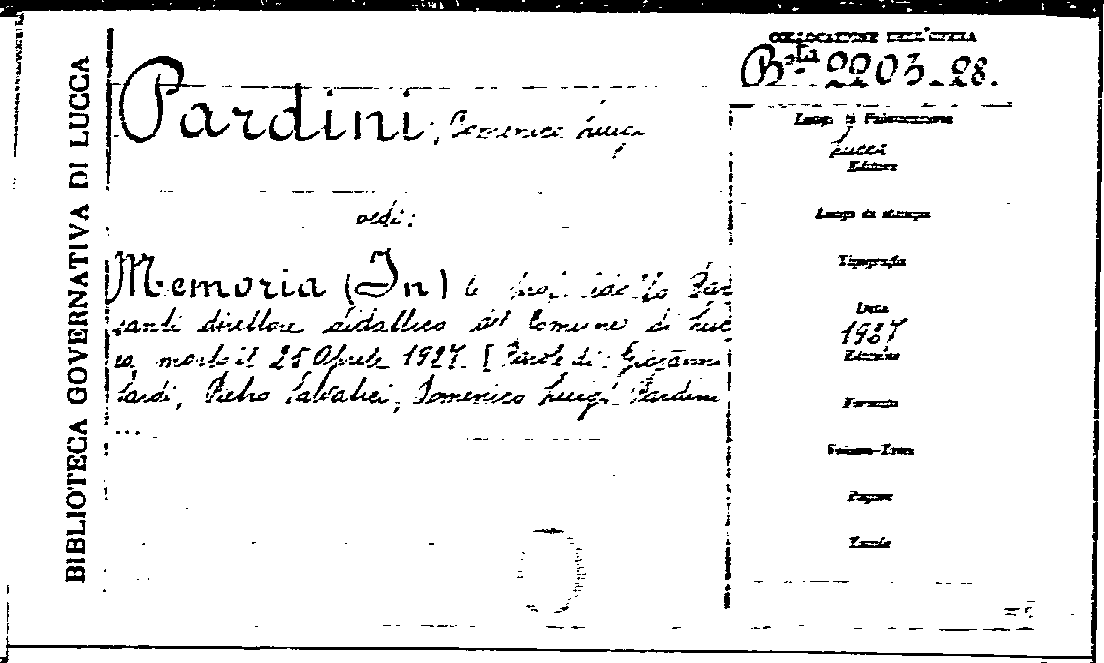 BIBLIOTECA GOVERNATIVA DI LUCCA
COLLOCAZIONE DELL'OPERA
Bta 2203-28.
Pardini, Domenico Luigi
Luogo di Pubblicazione
Lucca
Editore
vedi:
Luogo di stampa
Tipografia
Memoria (In)
santi direttore didattico del Comune di Luc
Data
1927
ca, morto il 25 Aprile 1927. [Parole di: Giovanni
Edizione
Sardi, Pietro Salvatici, Domenico Luigi Pardini
...
Formato
Volume-Tomo
Pagine
Tavole